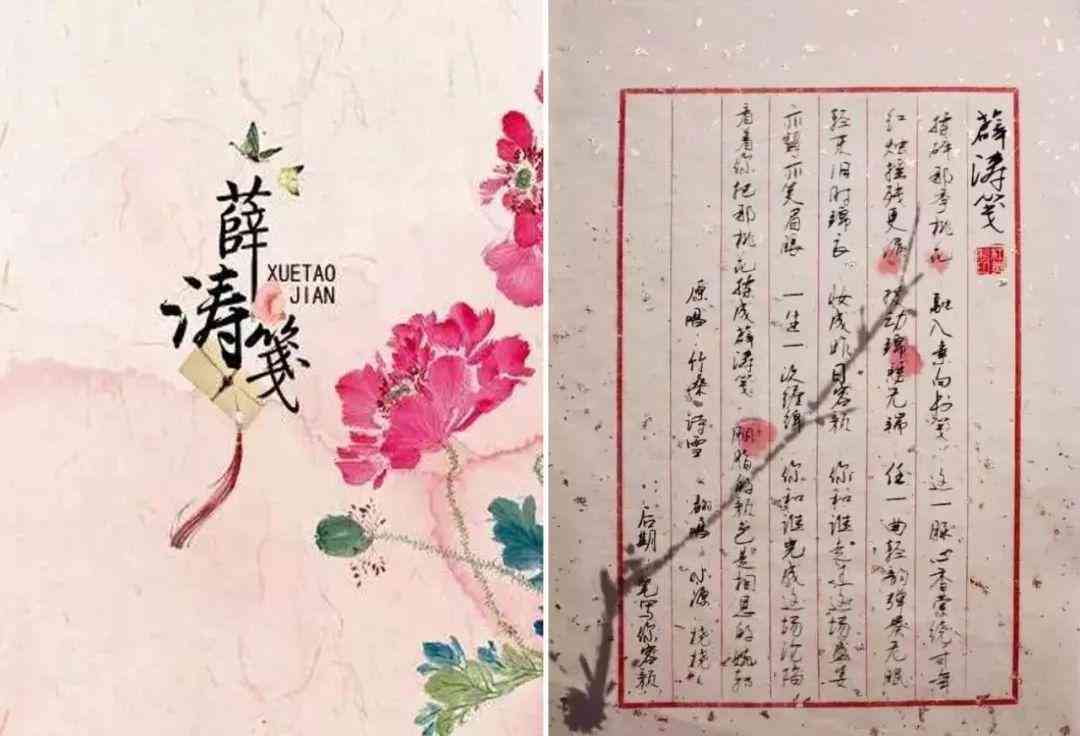 薛涛笺
XUETAO
JIAN
薛涛笺
揉碎那季桃花 融入素白书笺 这一脉心香萦绕
红烛摇残更漏 拨动锦瑟无端 任一曲轻韵弹奏无眠
轻束旧时锦衣 妆成昨日容颜 你和谁走过这场盛宴
亦颦亦笑眉眼 一生一次缠绵 你和谁完成这场沦陷
看着你把那桃花揉成薛涛笺 胭脂的颜色是相思的
原唱：竹桑诗雪 翻唱：小源
后期：笔写你容颜